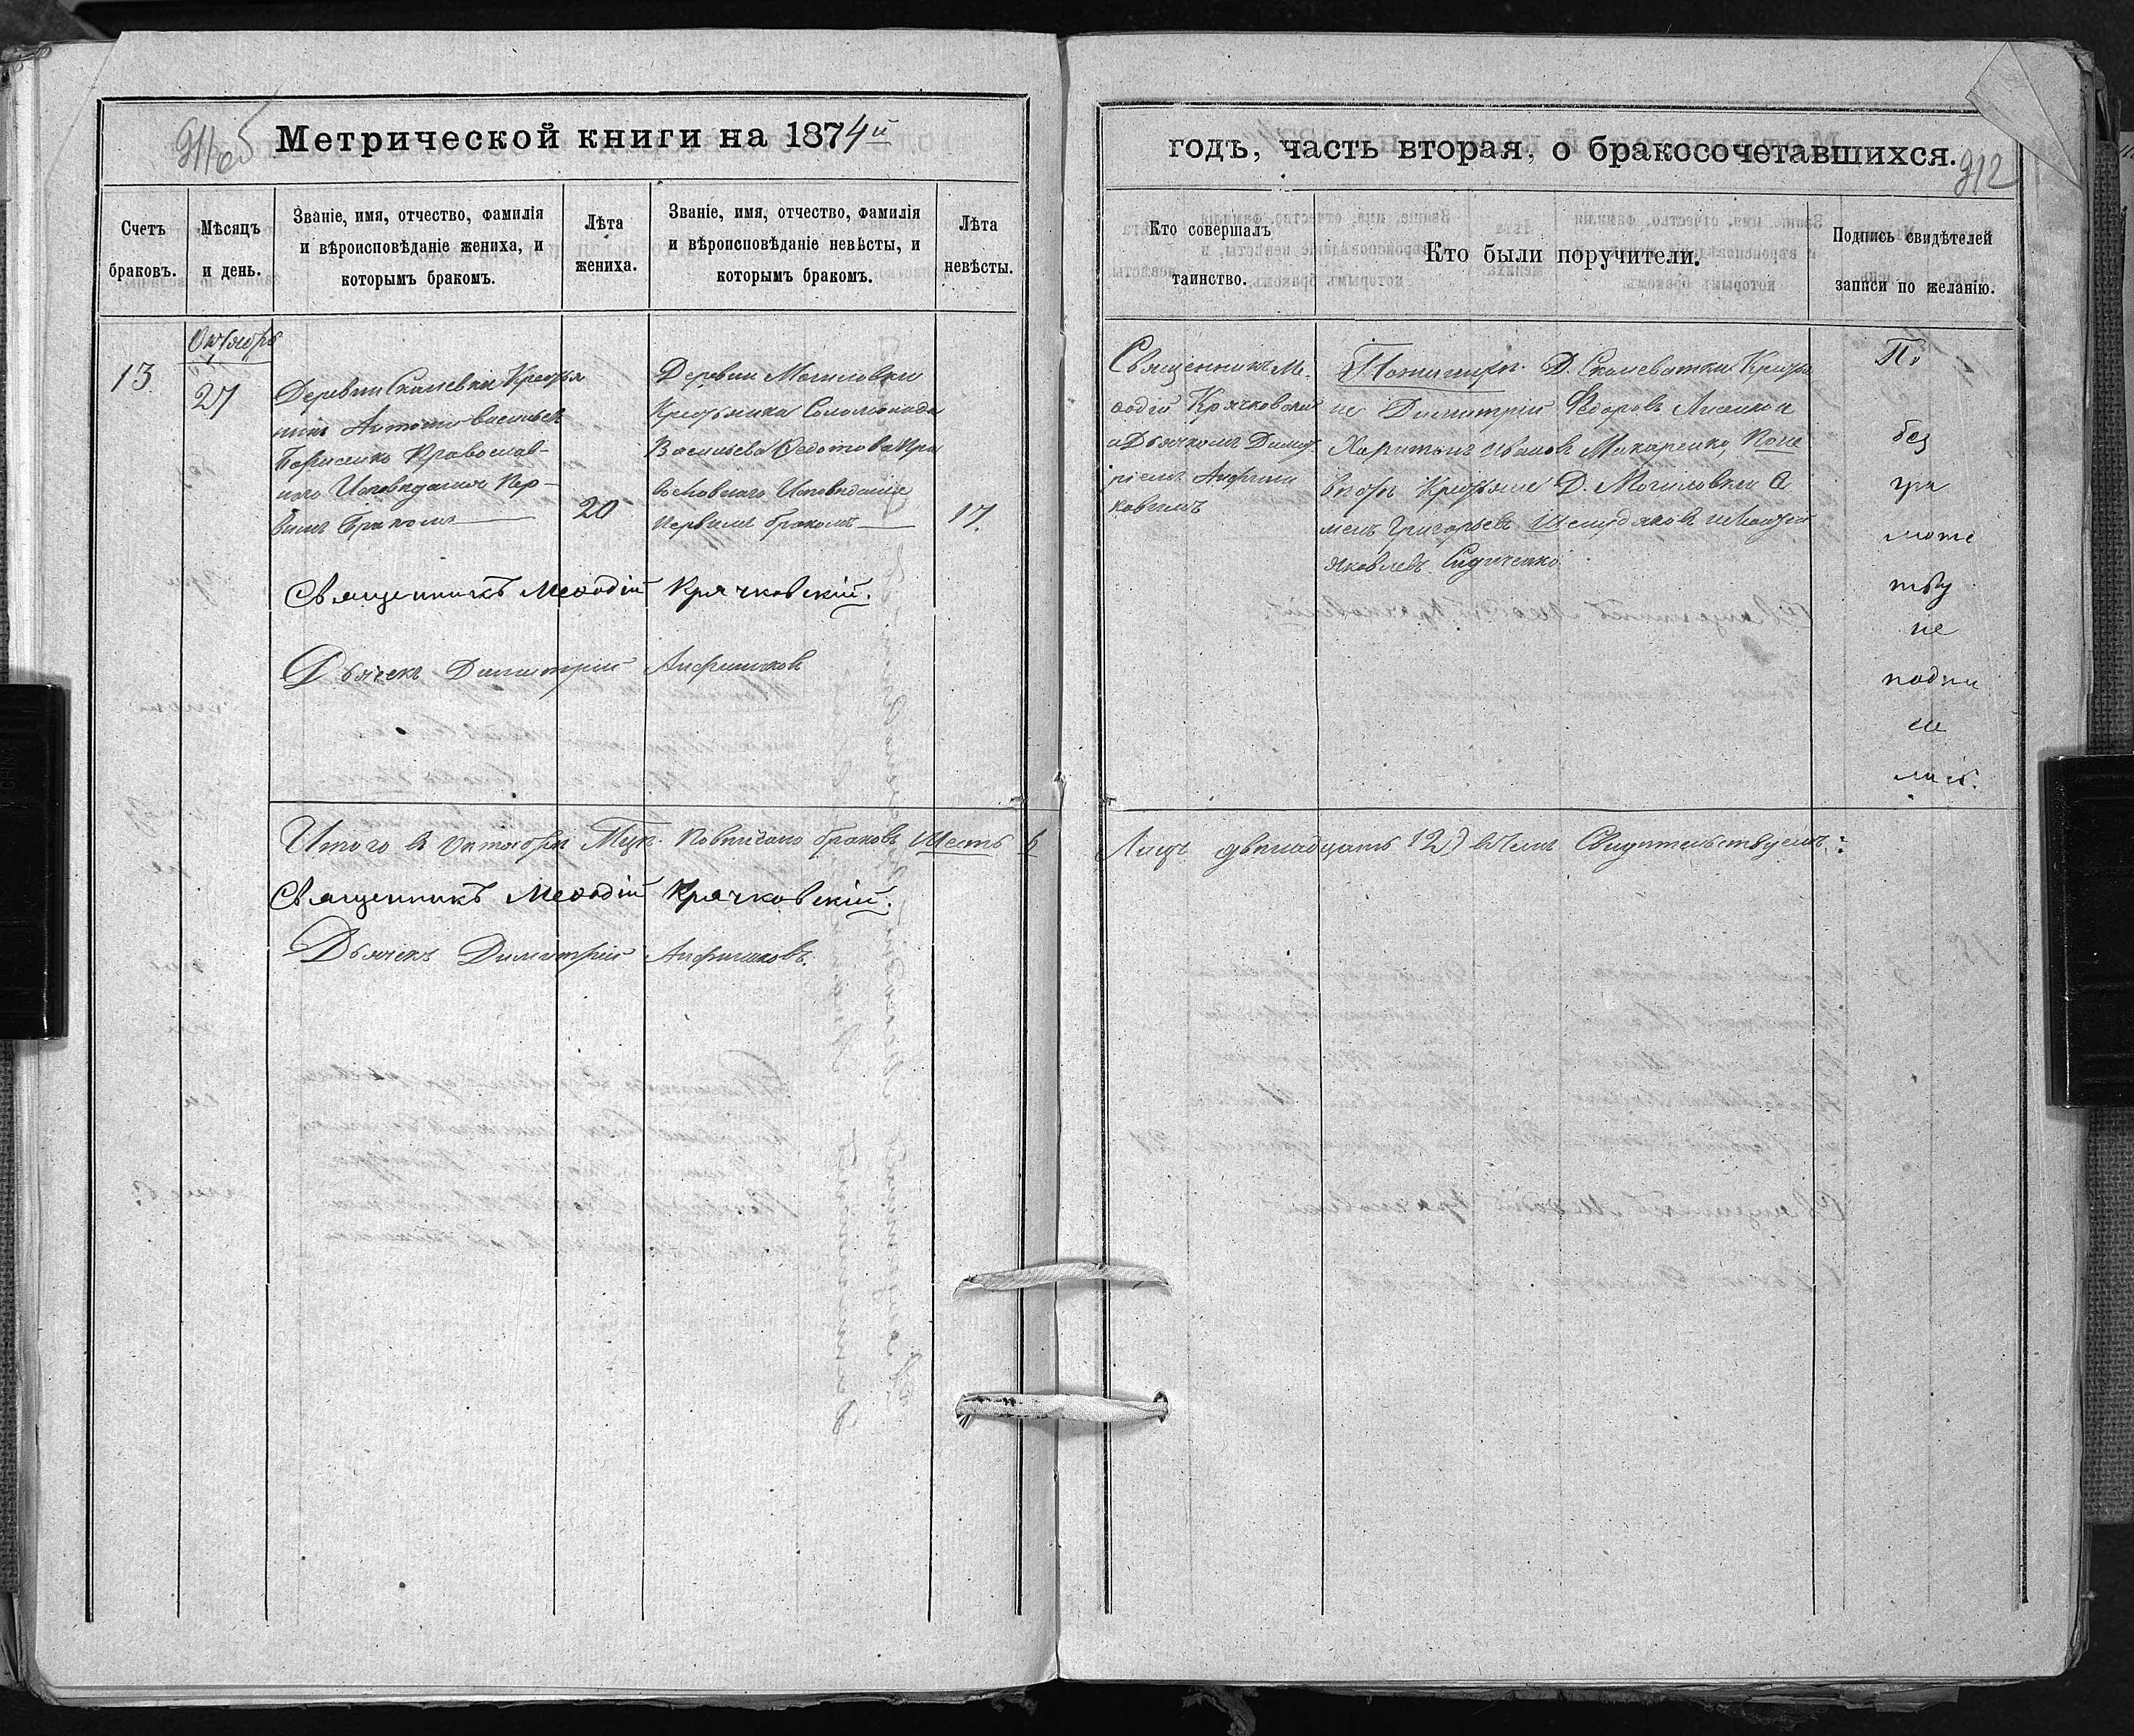 Метрической книги на 1874й
годъ, часть вторая, о бракосочетавшихся.
912
Счетъ браковъ.
Мѣсяцъ и день.
Званіе, имя, отчество, фамилія
и вѣроисповѣданіе жениха, и
которымъ бракомъ.
Лѣта жениха.
Званіе, имя, отчество, фамилія
и вѣроисповѣданіе невѣсты, и
которымъ бракомъ.
Лѣта невѣсты.
Кто совершалъ таинство.
Кто были поручители.
Подпись свидѣтелей
записи по желанію.
13
Октябрь
27
Деревни Крестья
нинъ Антонъ Васильев
Борисенко Православ-
наго Исповѣданія Пер-
вымъ Бракомъ
20
Деревни Могиловки
Крестьянка
Васильева Федотова Пра
вославнаго Исповѣданія
Первымъ бракомъ
17.
Священникъ Ме-
ѳодій Крячковскій
и Дьячкомъ Димит
ріемъ
По женихѣ Д. Крестья
не Димитрій Ѳедоровъ Лисенко и
Харитонъ Ивановъ Макаренко, По не
вѣстѣ Крестьяне Д. Могиловки С
менъ Григорьевъ
Яковлевъ
По
без
гра
моте
тву
не
подпи
са
лись.
Священникъ Меѳодій Крячковскій.
Дьячекъ Димитрій
Итого в Октябрѣ Мцѣ. Повѣнчано браковъ Шесть 6
Лицъ двенадцать 12) в чемъ Свидѣтельствуемъ:
Священникъ Меѳодій Крячковскій.
Дьячекъ Димитрій